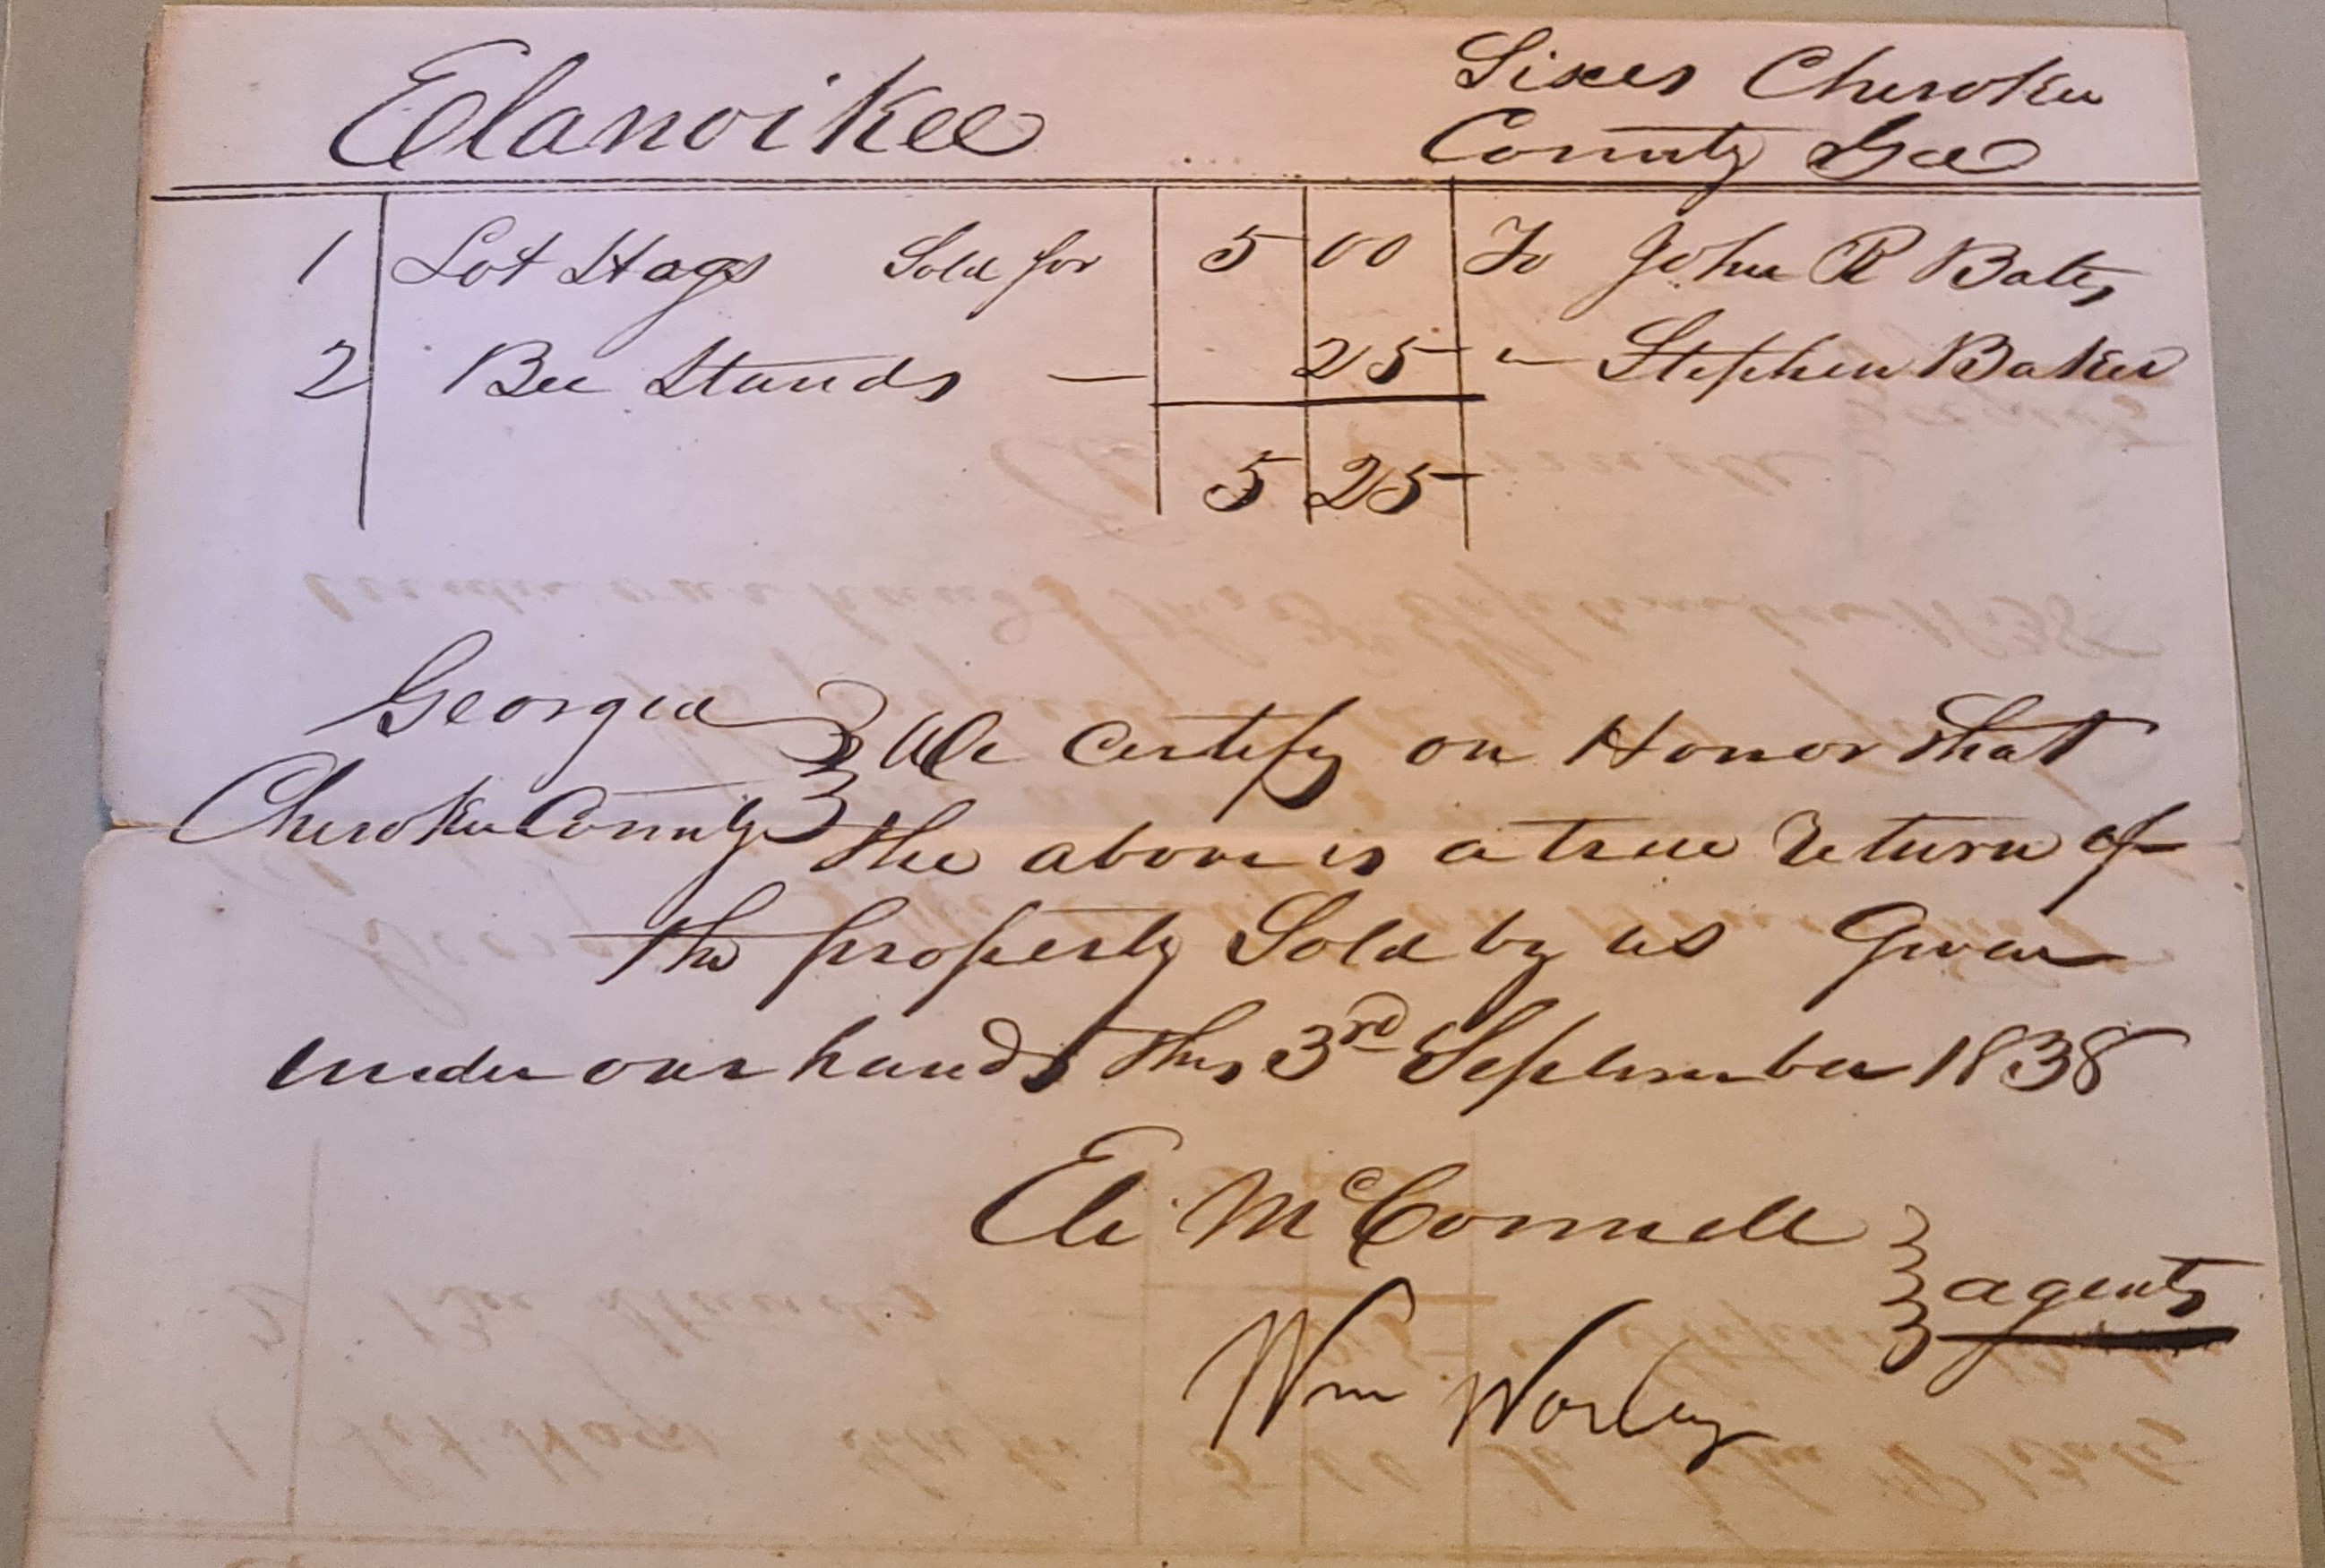 Elanoikee
Sixes Cherokee
County Gee
1 Lot Hogs Sold for 5 00 To John R Bates
2 Bee Stands — 25 " Stephen Baker
5 25
Georgia
Cherokee County
We Certify on Honor that
the above is a true return of
the property Sold by us Given
under our hands this 3rd September 1838
Eli McConnell
Wm Worley
agents